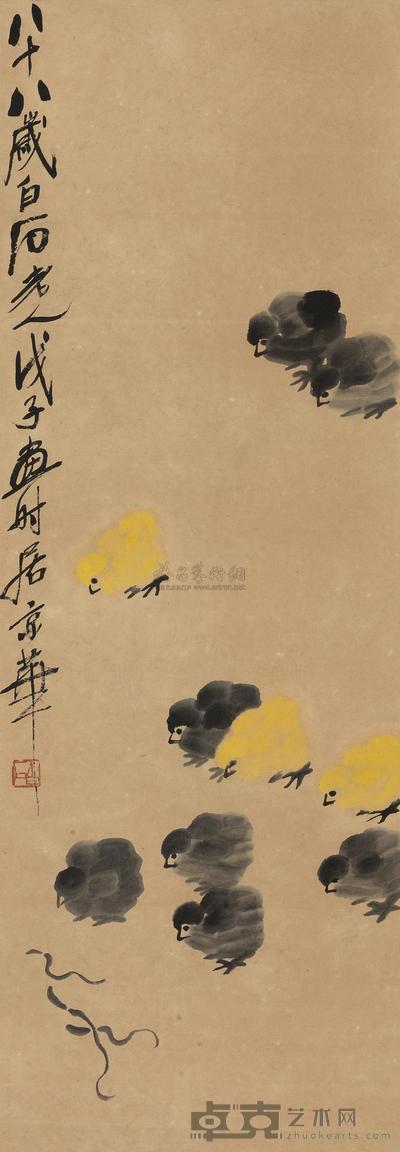 八十八歲白石老人戊子畫時居京華
www.artron.net
卓克艺术网
zhuokearts.com